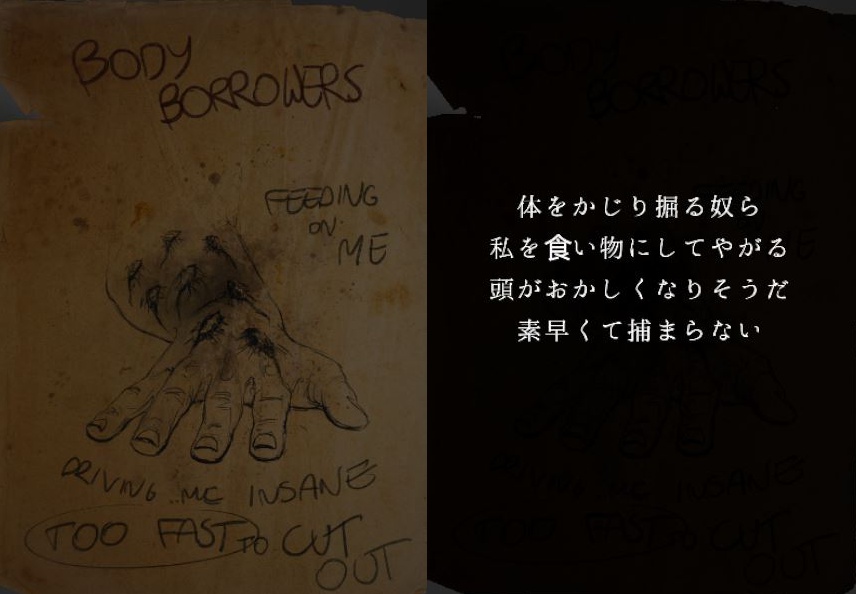 BODY
BORROWERS
FEEDING
ON
ME
DRIVING ME INSANE
TOO FAST TO CUT
OUT
体をかじり掘る奴ら
私を食い物にしてやがる
頭がおかしくなりそうだ
素早くて捕まらない